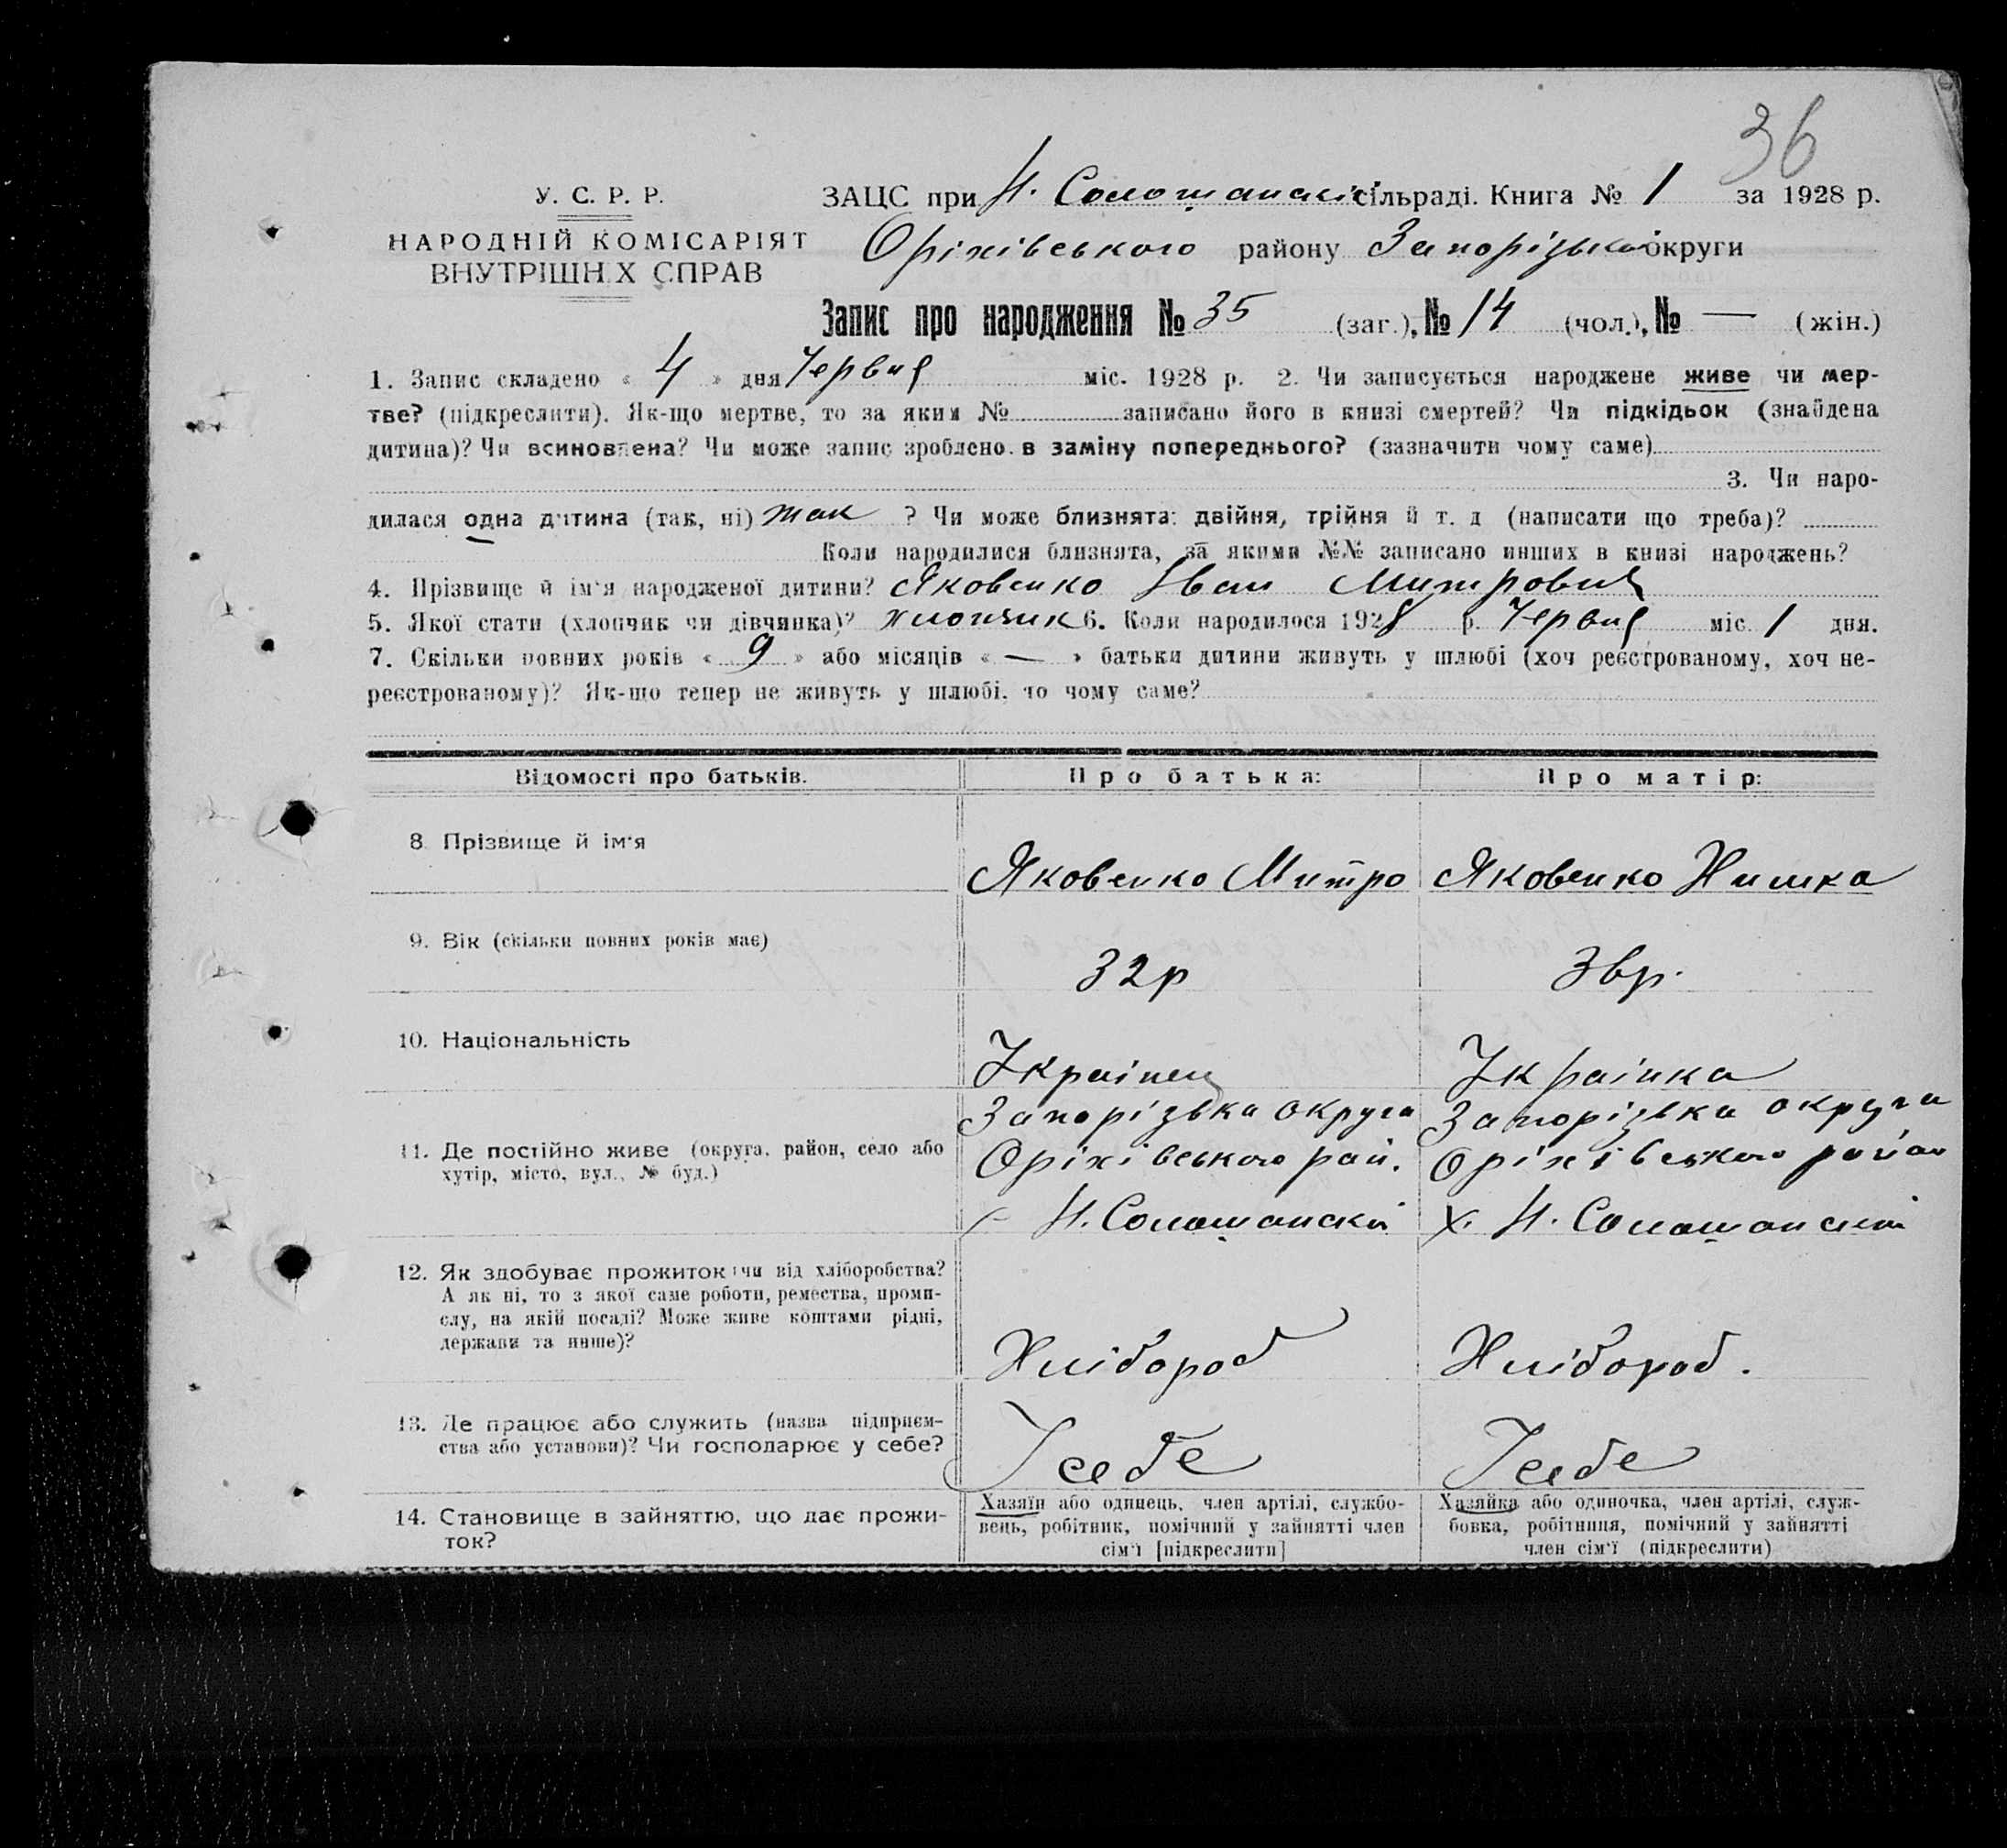 36
У. С. Р. Р.
НАРОДНІЙ КОМІСАРІЯТ
ВНУТРІШН Х СПРАВ
ЗАЦС при Н. Солошанскі сільраді. Книга № 1 за 1928 р.
Оріхівського району Запорізької округи
Запис про народження № 35 (заг.), № 14 (чол.), № — (жін.)
1. Запис складено « 4 » дня Червня міс. 1928 р. 2. Чи записується народжене живе чи мер-
тве? (підкреслити). Як-що мертве, то за яким № записано його в книзі смертей? Чи підкідьок (знайдена
дитина)? Чи всиновлена? Чи може запис зроблено в заміну попереднього? (зазначити чому саме)
3. Чи наро-
дилася одна дитина (так, ні) так ? Чи може близнята: двійня, трійня й т. д (написати що треба)?
Коли народилися близнята, за якими №№ записано инших в книзі народжень?
4. Прізвище й ім'я народженої дитини? Яковенко Іван Митрович
5. Якої стати (хлопчик чи дівчинка)? Хлопчик 6. Коли народилося 1928 р. Червня міс. 1 дня.
7. Скільки повних років « 9 » або місяців « — » батьки дитини живуть у шлюбі (хоч реєстрованому, хоч не-
реєстрованому)? Як-що тепер не живуть у шлюбі, то чому саме?
Відомості про батьків. Про батька: Про матір:
8 Прізвище й ім'я
Яковенко Митро Яковенко Химка
9. Вік (скільки повних років має)
32р 36р.
10. Національність
Українец Українка
11. Де постійно живе (округа, район, село або
хутір, місто, вул., № буд.)
Запорізька округа
Оріхівського рай.
Н. Солошанскій
Запорізька округа
Оріхівського район
х. Н. Солошанскій
12. Як здобуває прожиток: чи від хліборобства?
А як ні, то з якої саме роботи, ремества, проми-
слу, на якій посаді? Може живе коштами рідні,
держави та инше)?
Хлібороб Хлібороб.
13. Де працює або служить (назва підприєм-
ства або установи)? Чи господарює у себе?
У себе У себе
14. Становище в зайняттю, що дає прожи-
ток?
Хазяїн або одинець, член артілі, службо-
вець, робітник, помічний у зайнятті член
сім'ї [підкреслити]
Хазяйка або одиночка, член артілі, служ-
бовка, робітниця, помічний у зайнятті
член сім'ї (підкреслити)